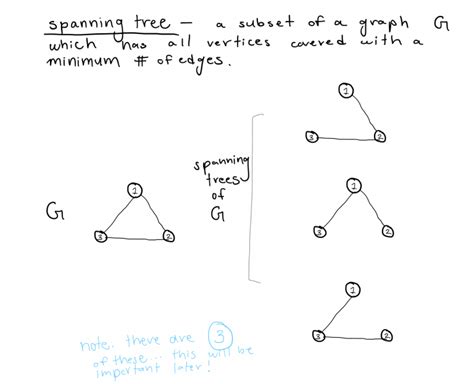 spanning tree – a subset of a graph G
which has all vertices covered with a
minimum # of edges.
1
3
2
spanning
trees
of
G
G
1
3
2
1
3
2
1
3
2
note. there are 3
of these... this will be
important later!